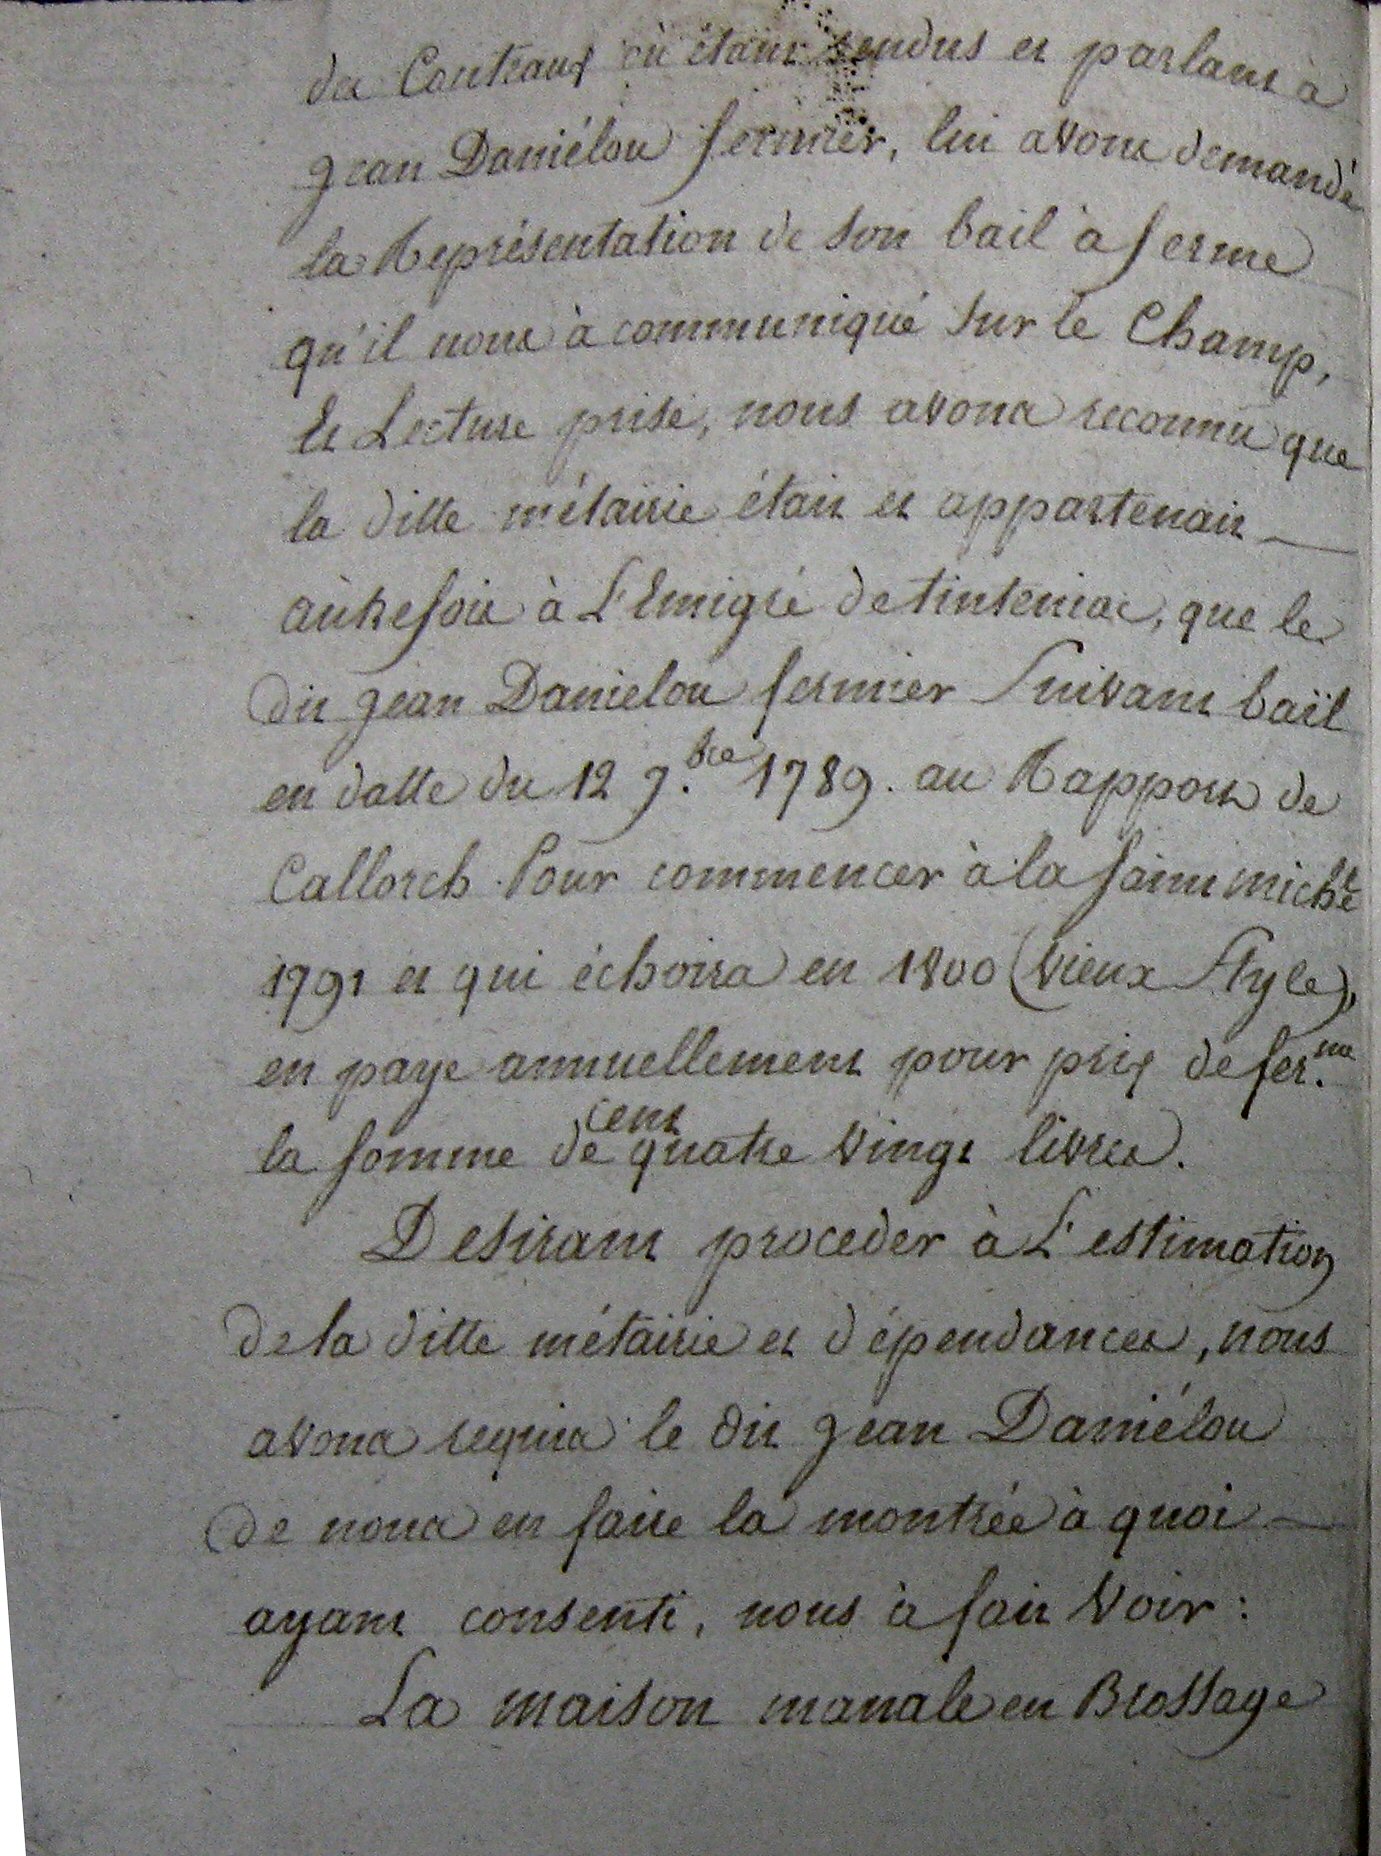 des Couteaux où étant rendus et parlant à
jean Daniélou fermier, lui avons demandé
la Représentation de son bail à ferme
qu'il nous à communiqué sur le Champ,
Et Lecture prise, nous avons reconnu que
la ditte métairie était et appartenait
autrefois à L'Emigré detinteniac, que le
dit jean Danielou fermier Suivant baïl
en datte du 12 9.bre 1789. au Rapport de
Callorch Pour commencer à la saint michel
1791 et qui échoira en 1800 (vieux Style),
en paye annuellement pour prix de fer.me
la somme de cent quatre vingt livres.
Desirant proceder à L'estimation
dela ditte métairie et dépendances, nous
avons requis le dit jean Daniélou
de nous en faire la montrée à quoi
ayant consenti, nous à fait voir :
La maison manale en Brossage